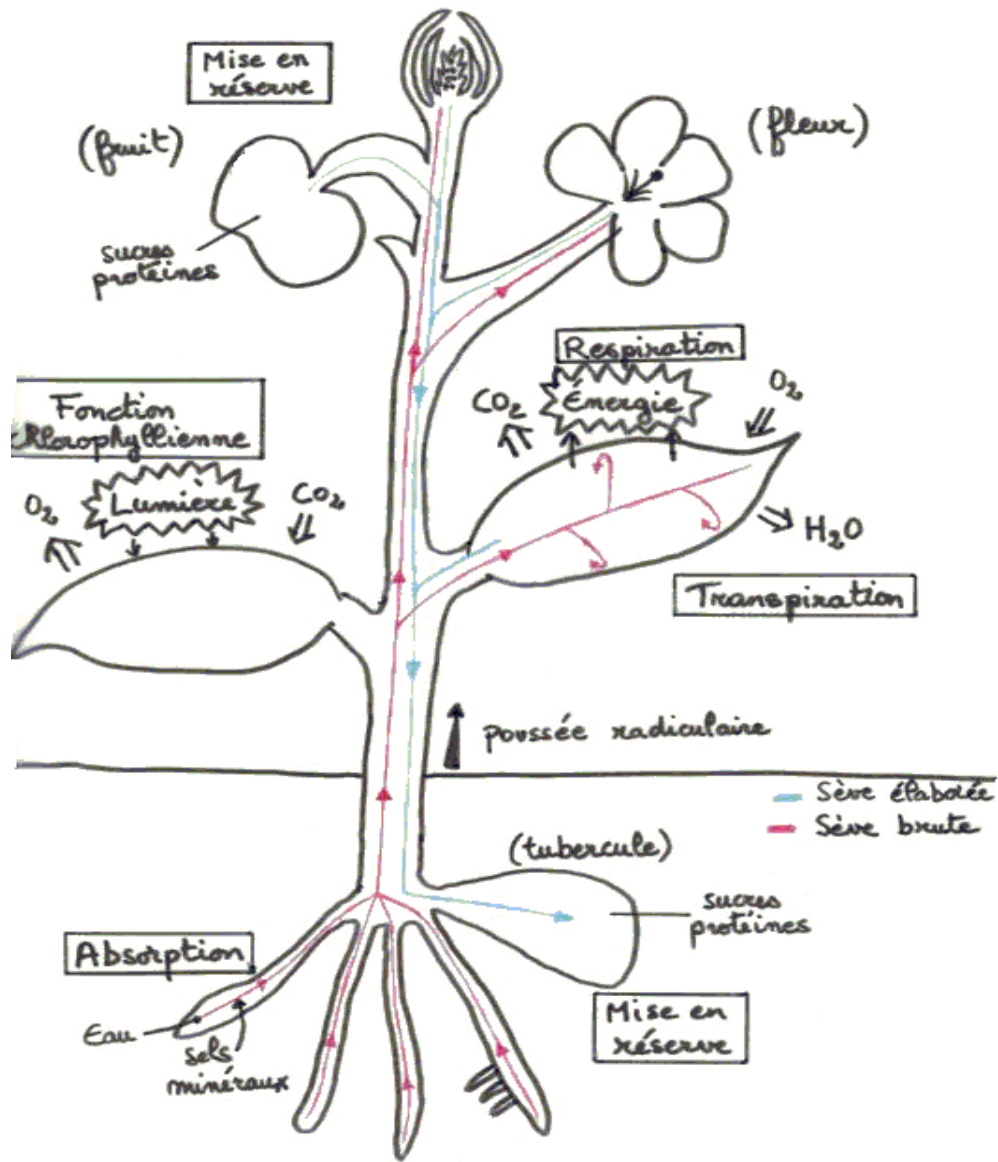 Mise en
réserve
(fruit)
(fleur)
sucres
protéines
Respiration
Énergie
CO₂
O₂
Fonction
chlorophyllienne
Lumière
O₂
CO₂
H₂O
Transpiration
poussée radiculaire
Sève élaborée
Sève brute
(tubercule)
sucres
protéines
Absorption
Eau
sels
minéraux
Mise en
réserve